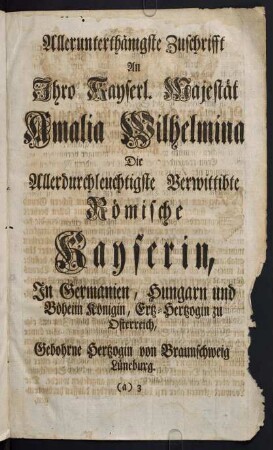 Allerunterthänigste Zuschrifft
An
Ihro Kayserl. Majestät
Amalia Wilhelmina
Die
Allerdurchleuchtigste Verwittibte
Römische
Kayserin,
In Germanien, Hungarn und
Böheim Königin, Ertz-Hertzogin zu
Osterreich,
Gebohrne Hertzogin von Braunschweig
Lüneburg.
(a) 3